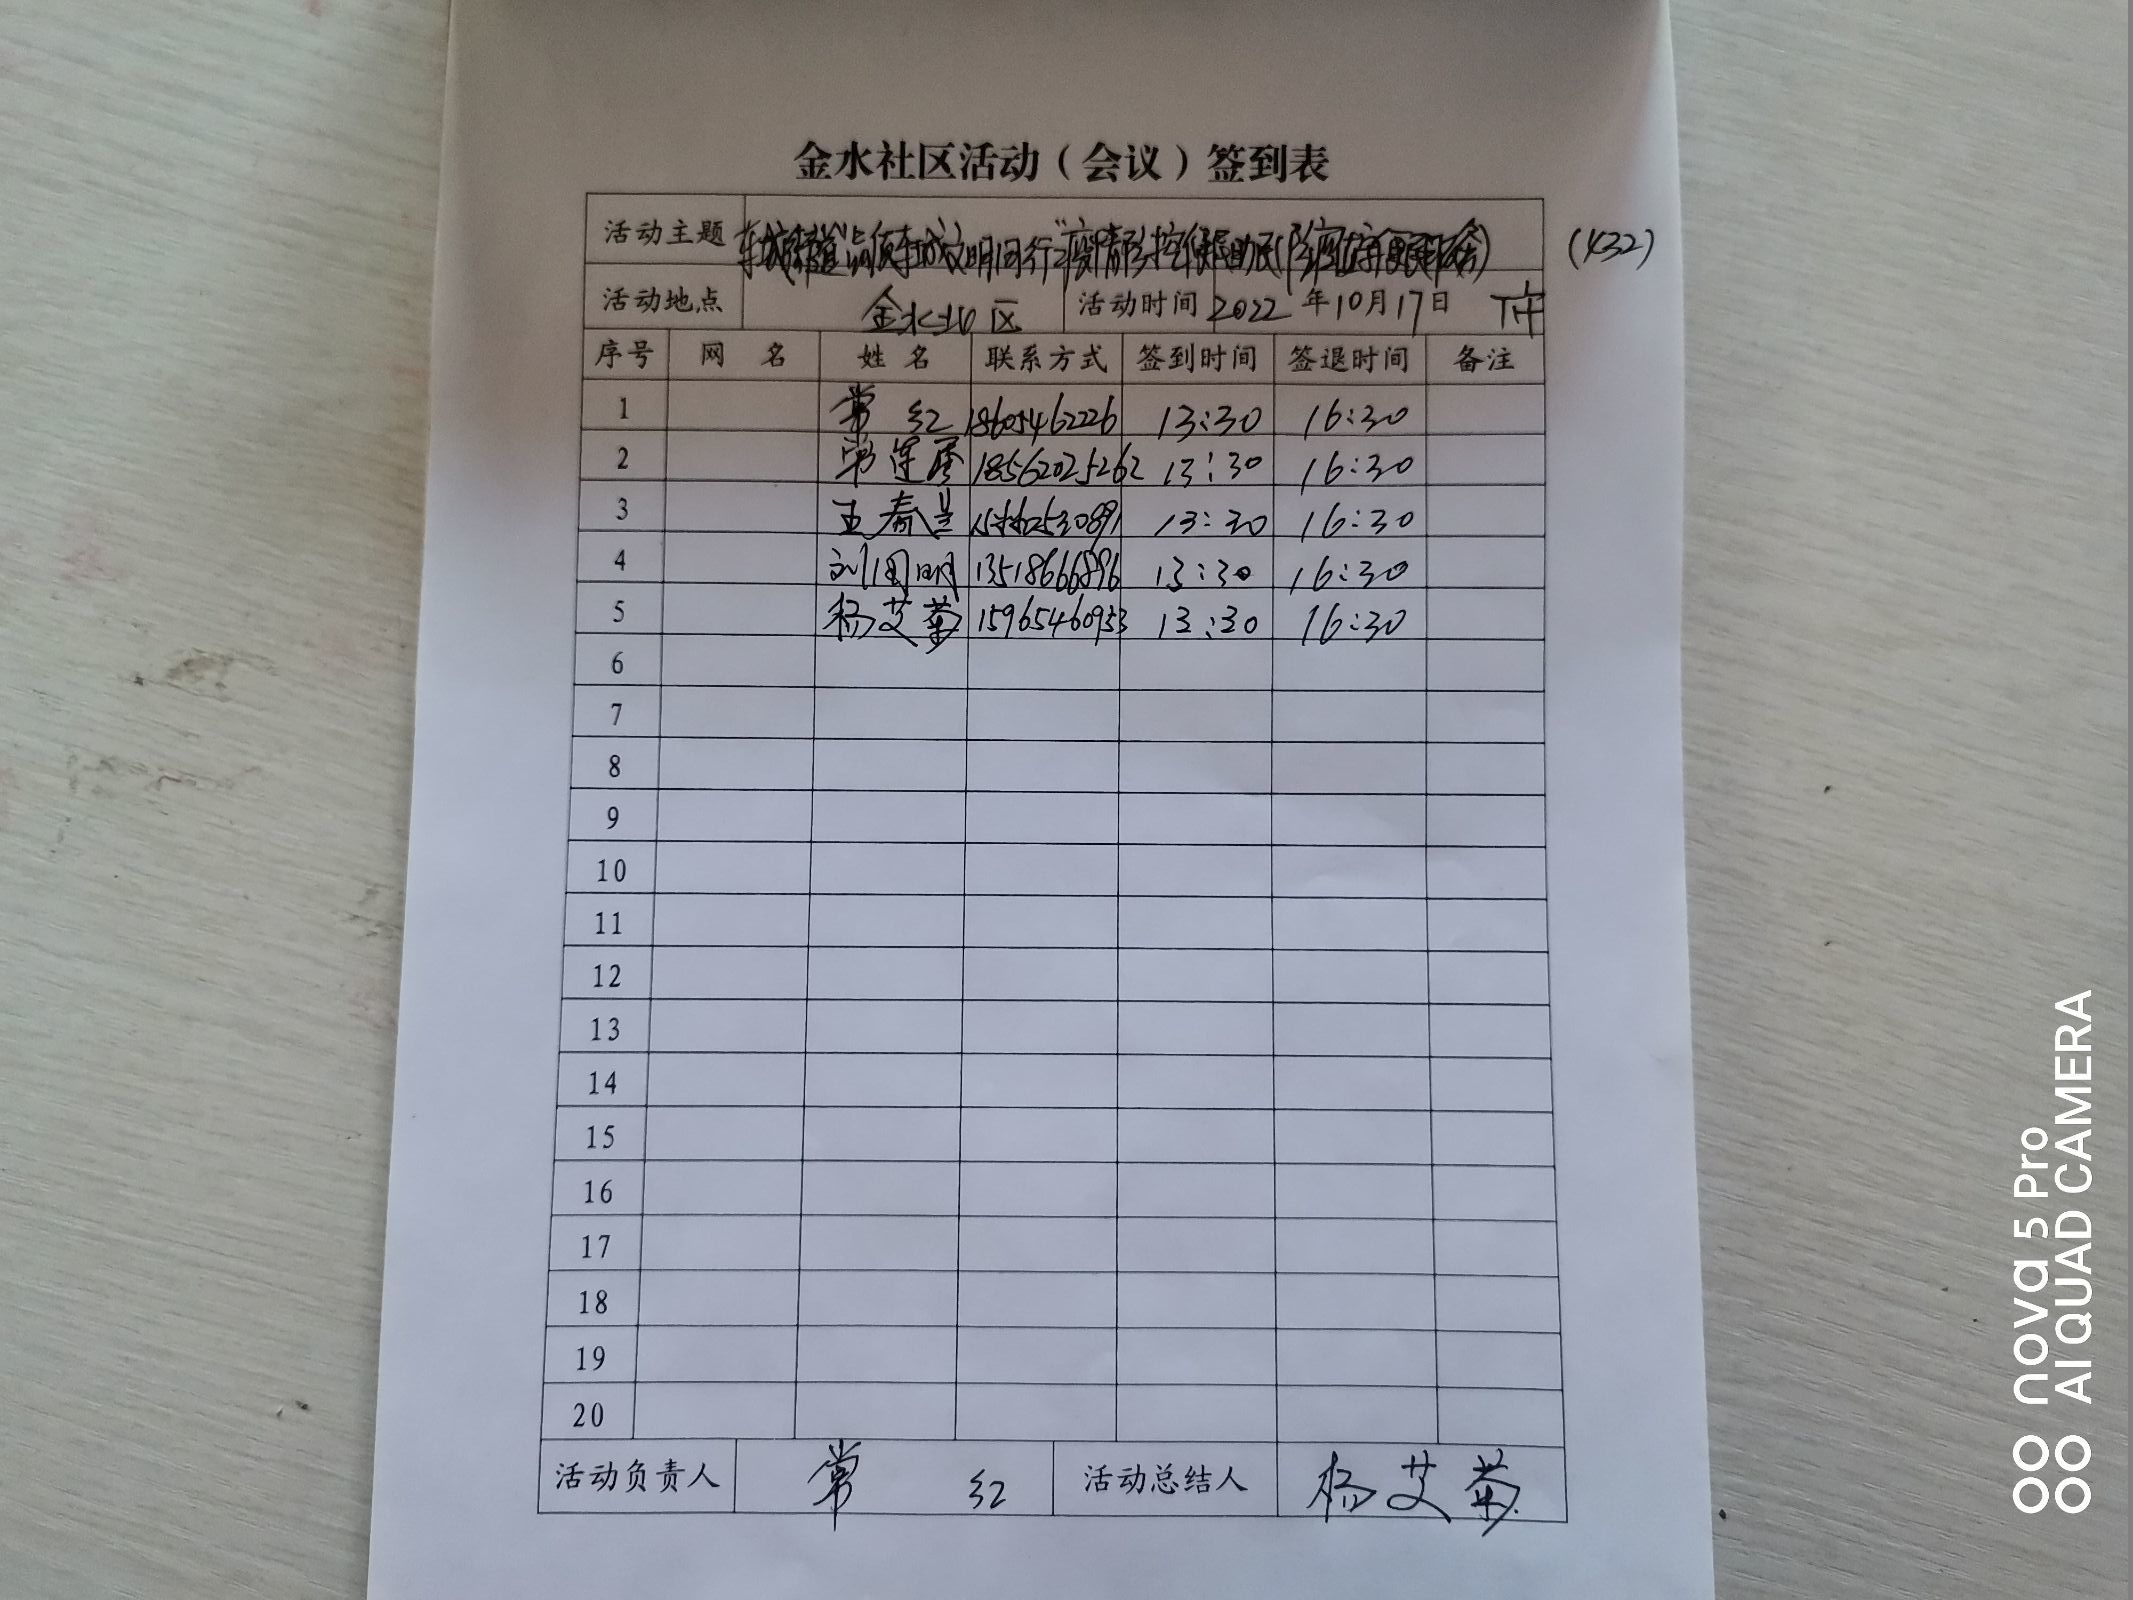 金水社区活动（会议）签到表
活动主题 文明同行 疫情防控 (432)
活动地点 金水社区 活动时间 2022年10月17日 下午
序号 网名 姓名 联系方式 签到时间 签退时间 备注
1 常红 18605462226 13:30 16:30
2 18562025262 13:30 16:30
3 王春兰 13:30 16:30
4 刘国明 13518666896 13:30 16:30
5 杨艾菊 15965460953 13:30 16:30
6
7
8
9
10
11
12
13
14
15
16
17
18
19
20
活动负责人 常红 活动总结人 杨艾菊
nova 5 Pro
AI QUAD CAMERA